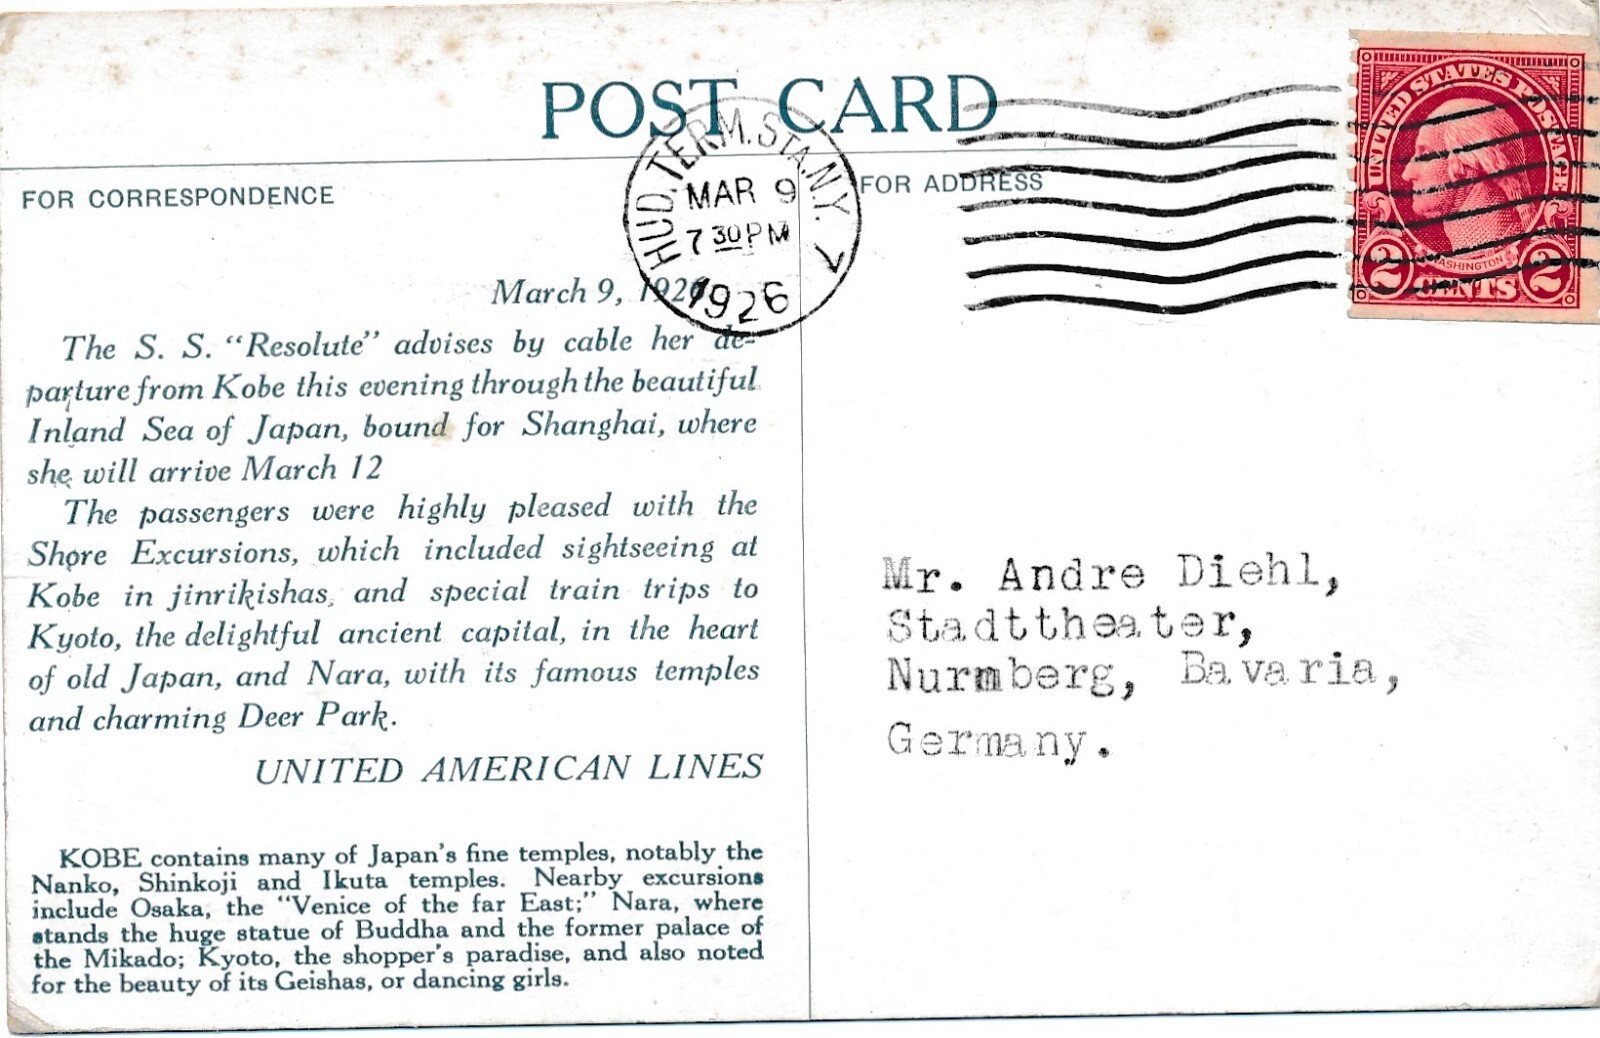 POST CARD
FOR CORRESPONDENCE
HUD. TERM. STA. N.Y. 7
MAR 9
7 30 PM
1926
FOR ADDRESS
UNITED STATES POSTAGE
WASHINGTON
2 CENTS 2
March 9, 1926
The S. S. “Resolute” advises by cable her de-
parture from Kobe this evening through the beautiful
Inland Sea of Japan, bound for Shanghai, where
she will arrive March 12
The passengers were highly pleased with the
Shore Excursions, which included sightseeing at
Kobe in jinrikishas, and special train trips to
Kyoto, the delightful ancient capital, in the heart
of old Japan, and Nara, with its famous temples
and charming Deer Park.
UNITED AMERICAN LINES
KOBE contains many of Japan's fine temples, notably the
Nanko, Shinkoji and Ikuta temples. Nearby excursions
include Osaka, the “Venice of the far East;” Nara, where
stands the huge statue of Buddha and the former palace of
the Mikado; Kyoto, the shopper's paradise, and also noted
for the beauty of its Geishas, or dancing girls.
Mr. Andre Diehl,
Stadttheater,
Nurmberg, Bavaria,
Germany.